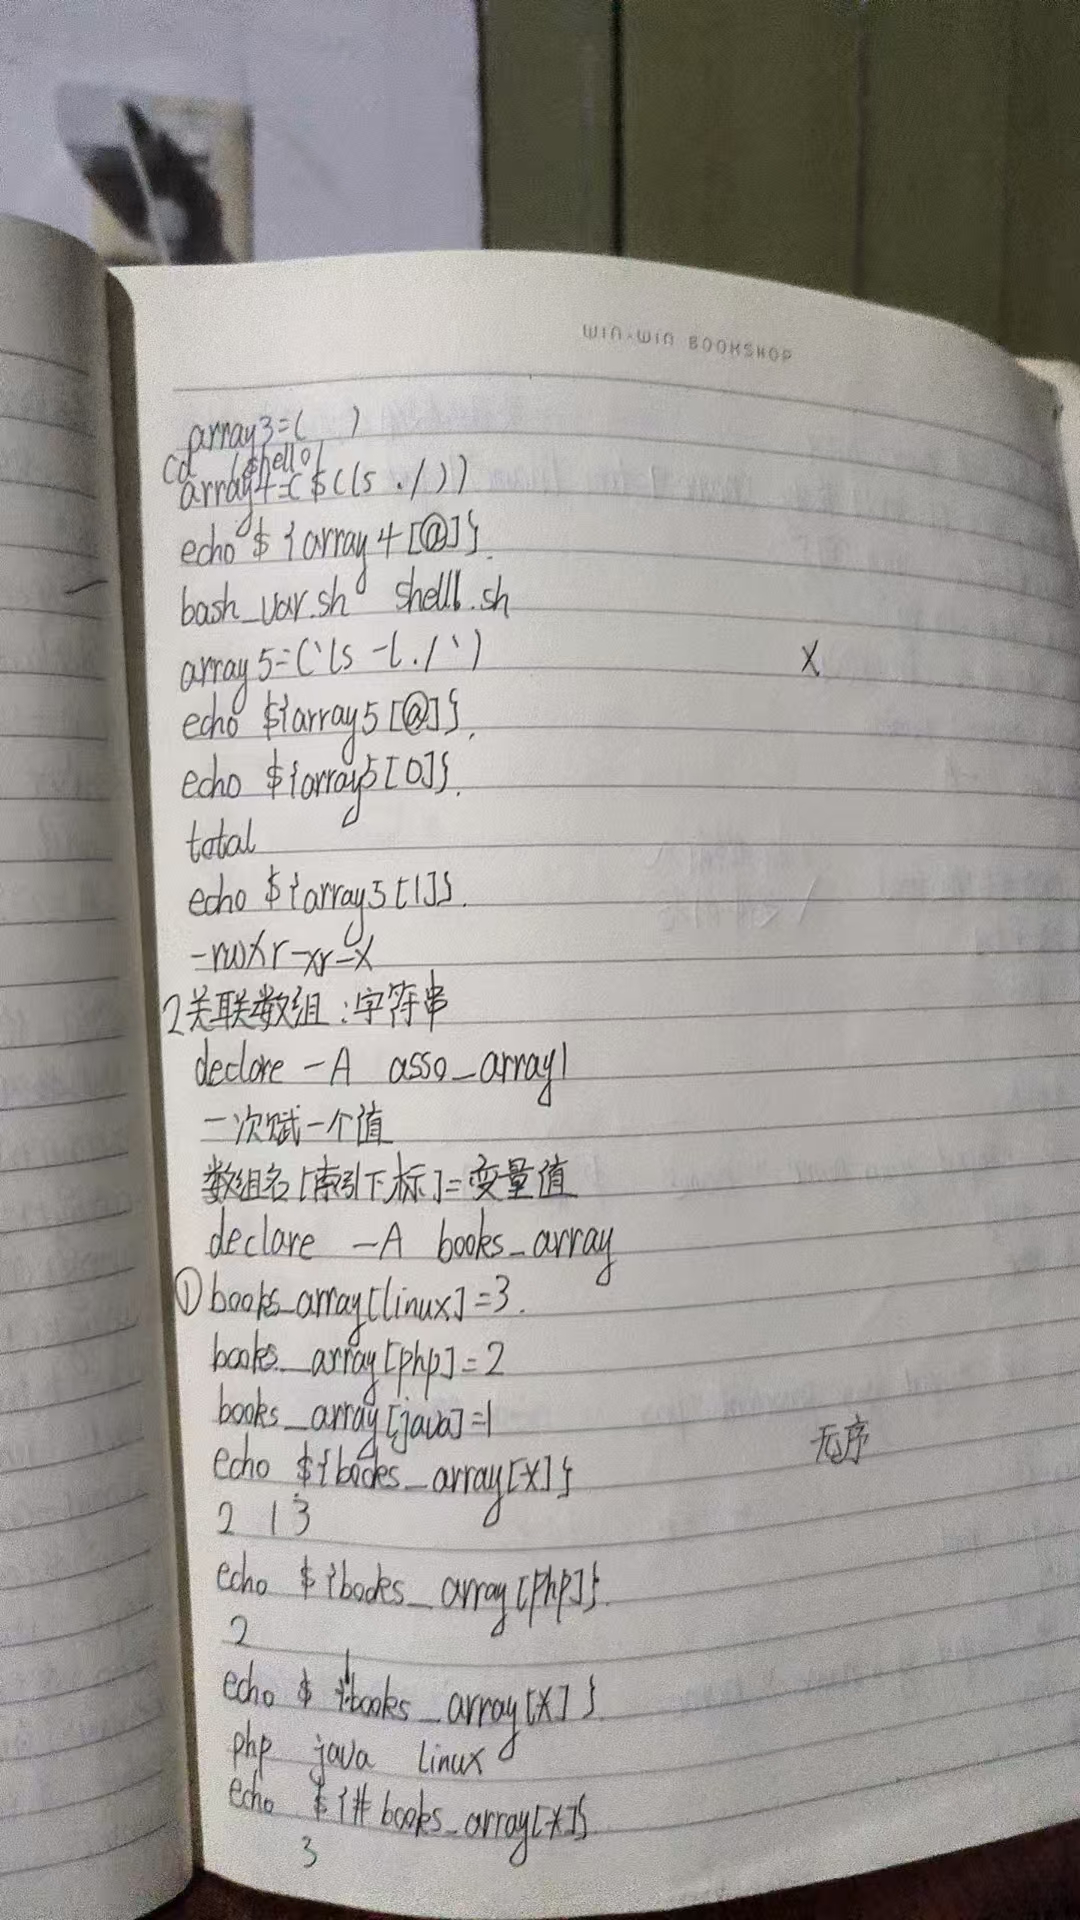 WIN-WIN BOOKSHOP
array3=( )
cd /shell01
array4=($(ls ./))
echo ${array4[@]}
bash_var.sh shell1.sh
array5=(`ls -l ./`) X
echo ${array5[@]}
echo ${array5[0]}
total
echo ${array5[1]}
-rwxr-xr-x
2关联数组:字符串
declare -A asso_array1
一次赋一个值
数组名[索引下标]=变量值
declare -A books_array
①books_array[linux]=3
books_array[php]=2
books_array[java]=1
无序
echo ${books_array[*]}
2 1 3
echo ${books_array[php]}
2
echo ${!books_array[*]}
php java linux
echo ${#books_array[*]}
3